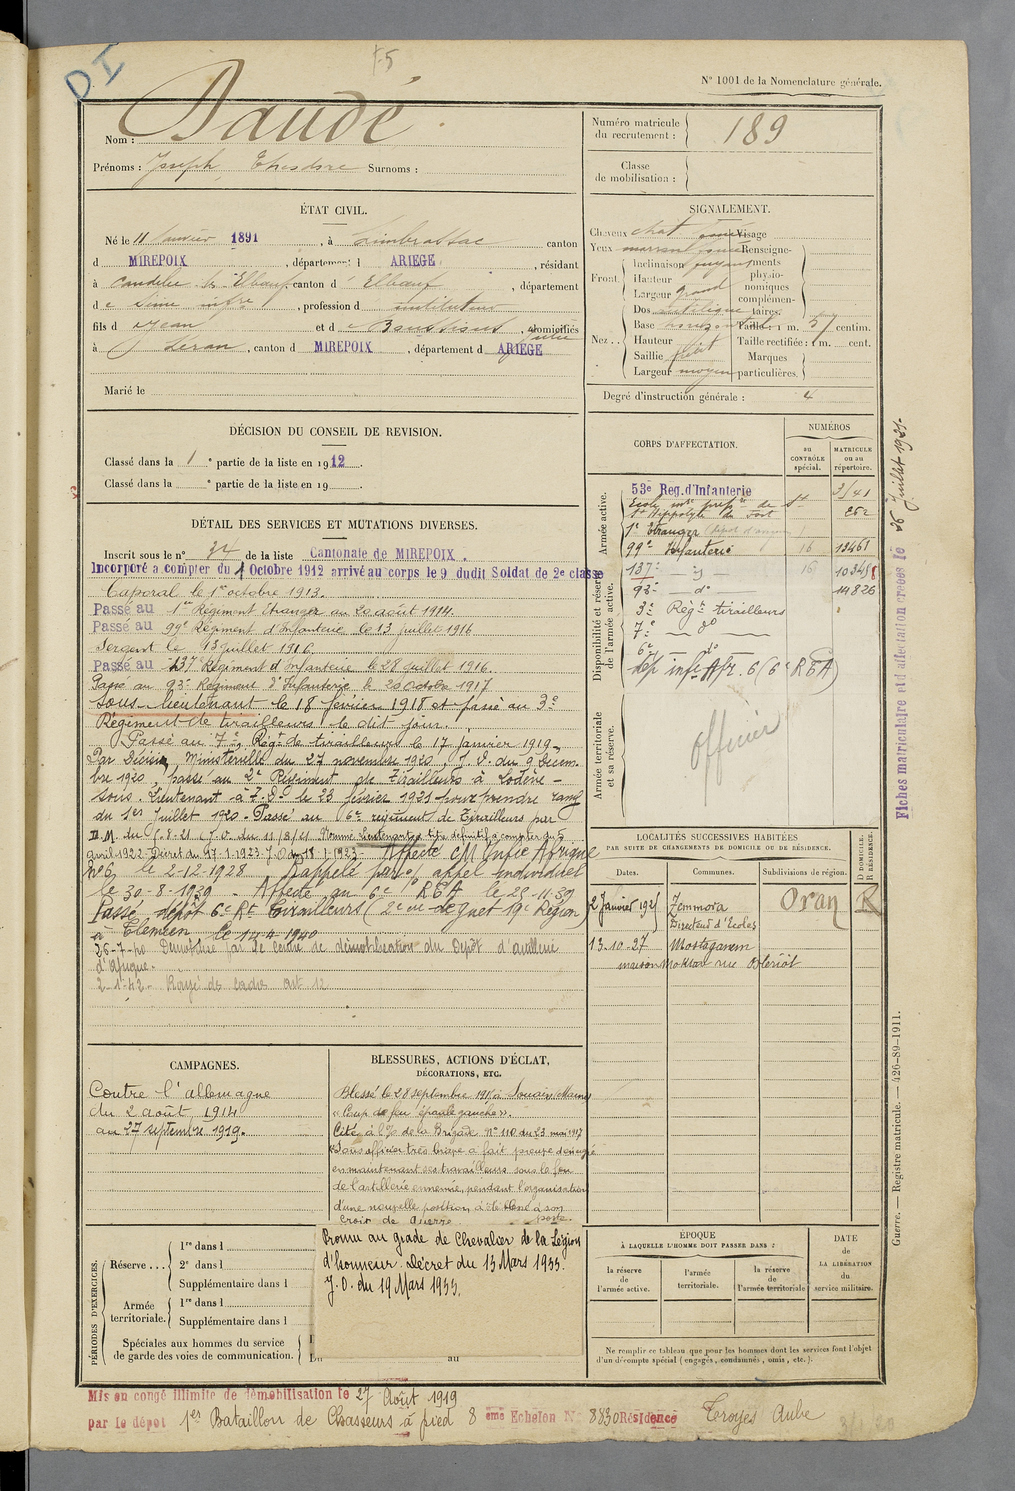 D.I
N° 1001 de la Nomenclature générale.
Nom : Daudé
Prénoms : Joseph, Théodore Surnoms :
Numéro matricule du recrutement : 189
Classe de mobilisation :
ÉTAT CIVIL.
Né le 11 Janvier 1891, à Limbrassac canton
d MIREPOIX, département d ARIEGE, résidant
à Caudebec-ls-Elbeuf, canton d Elbeuf, département
d e Seine infre, profession d instituteur
fils d Jean et d e Boussioux Julie, domiciliés
à Leran, canton d MIREPOIX, département d ARIEGE
Marié le
SIGNALEMENT.
Cheveux chat foncé Visage
Yeux marron foncé Renseignements physionomiques complémentaires.
Front Inclinaison moyen
Hauteur
Largeur grand
Nez Dos rectiligne
Base horizontal Taille : 1 m. centim.
Hauteur Taille rectifiée : 1 m. cent.
Saillie petit Marques
Largeur moyen particulières.
Degré d'instruction générale : 4
DÉCISION DU CONSEIL DE REVISION.
Classé dans la 1e partie de la liste en 1912.
Classé dans la e partie de la liste en 19
DÉTAIL DES SERVICES ET MUTATIONS DIVERSES.
Inscrit sous le n° 34 de la liste Cantonale de MIREPOIX.
Incorporé a compter du 1 Octobre 1912 arrivé au corps le 9 dudit Soldat de 2e classe
Caporal le 1er octobre 1913.
Passé au 1er Régiment Etranger au 20 août 1914.
Passé au 99e Régiment d'Infanterie le 13 juillet 1916
Sergent le 13 juillet 1916.
Passé au 137 Régiment d'Infanterie le 28 juillet 1916.
Passé au 93e Régiment d'Infanterie le 20 octobre 1917
Sous-lieutenant le 18 février 1918 et passé au 3e
Régiment de tirailleurs le dit jour.
Passé au 7e Régt de tirailleurs le 17 janvier 1919.
Par Décision Ministérielle du 27 novembre 1920, J.O. du 9 Décem.
bre 1920, passé au 2e Régiment de Tirailleurs à Lodève -
Sous-Lieutenant à T.D. le 23 février 1921 pour prendre rang
du 1er Juillet 1920 - Passé au 6e régiment de Tirailleurs par
D.M. du 6-8-21 J.O. du 11/8/21 Nommé lieutenant à titre définitif à compter du 5
avril 1922 - Décret du 17-1-1923 - J.O. du 18-1-1923 Affecté CM Infie Afrique
No 6, le 2-12-1928 Rappelé par appel individuel
le 30-8-1939 - Affecté au 6e REA le 25-11-39
Passé dépôt 6e Rt Tirailleurs ( 19e Région)
à Tlemcen le 14-4-1940
26-7-40 Démobilisé par le centre de démobilisation du Dépôt d'artillerie
d'Afrique.
2-1-42- Rayé des cadres art 12
CORPS D'AFFECTATION.
NUMÉROS
au CONTRÔLE spécial.
MATRICULE ou au répertoire.
Armée active.
53e Reg. d'Infanterie 3741
St Hippolyte du Fort 262
1er Etranger
99e Infanterie 16 12461
Disponibilité et réserve de l'armée active.
137e 16 10348
93e — do — 14826
3e Régt tirailleurs
7e — do —
Dép infie Afr. 6 (6e REA)
Armée territoriale et sa réserve.
officier
Fiches matriculaire et d'affectation créées le 26 Juillet 1921.
LOCALITÉS SUCCESSIVES HABITÉES
PAR SUITE DE CHANGEMENTS DE DOMICILE OU DE RÉSIDENCE.
Dates. Communes. Subdivisions de région. D DOMICILE. R RÉSIDENCE.
2 Janvier 1925 Zemmora Oran R
Directeur d'Ecoles
13-10-27 Mostaganem
maison Moktar rue
CAMPAGNES.
Contre l'allemagne
du 2 août 1914
au 27 septembre 1919.
BLESSURES, ACTIONS D'ÉCLAT,
DÉCORATIONS, ETC.
Blessé le 28 septembre 1915 à Souain (Marne)
"Coup de feu épaule gauche".
Cité à l'O/ de la Brigade N° 110 du 23 mai 1917
"Sous officier très brave a fait preuve d'énergie
en maintenant ses travailleurs sous le feu
de l'artillerie ennemie, pendant l'organisation
d'une nouvelle position a été blessé à son
poste.
Croix de Guerre
Promu au grade de Chevalier de la Légion
d'honneur. Décret du 13 Mars 1933.
J.O. du 19 Mars 1933.
PÉRIODES D'EXERCICES.
Réserve... 1re dans l
2e dans l
Supplémentaire dans l
Armée territoriale. 1re dans l
Supplémentaire dans l
Spéciales aux hommes du service
de garde des voies de communication.
au
ÉPOQUE
À LAQUELLE L'HOMME DOIT PASSER DANS :
la réserve de l'armée active.
l'armée territoriale.
la réserve de l'armée territoriale
DATE de LA LIBÉRATION du service militaire.
Ne remplir ce tableau que pour les hommes dont les services font l'objet
d'un décompte spécial (engagés, condamnés, omis, etc.).
Guerre. — Registre matricule. — 426-89-1911.
Mis en congé illimité de démobilisation le 27 Août 1919
par le dépot 1er Bataillon de Chasseurs à pied 8 ème Echelon N° 8830 Résidence Troyes Aube